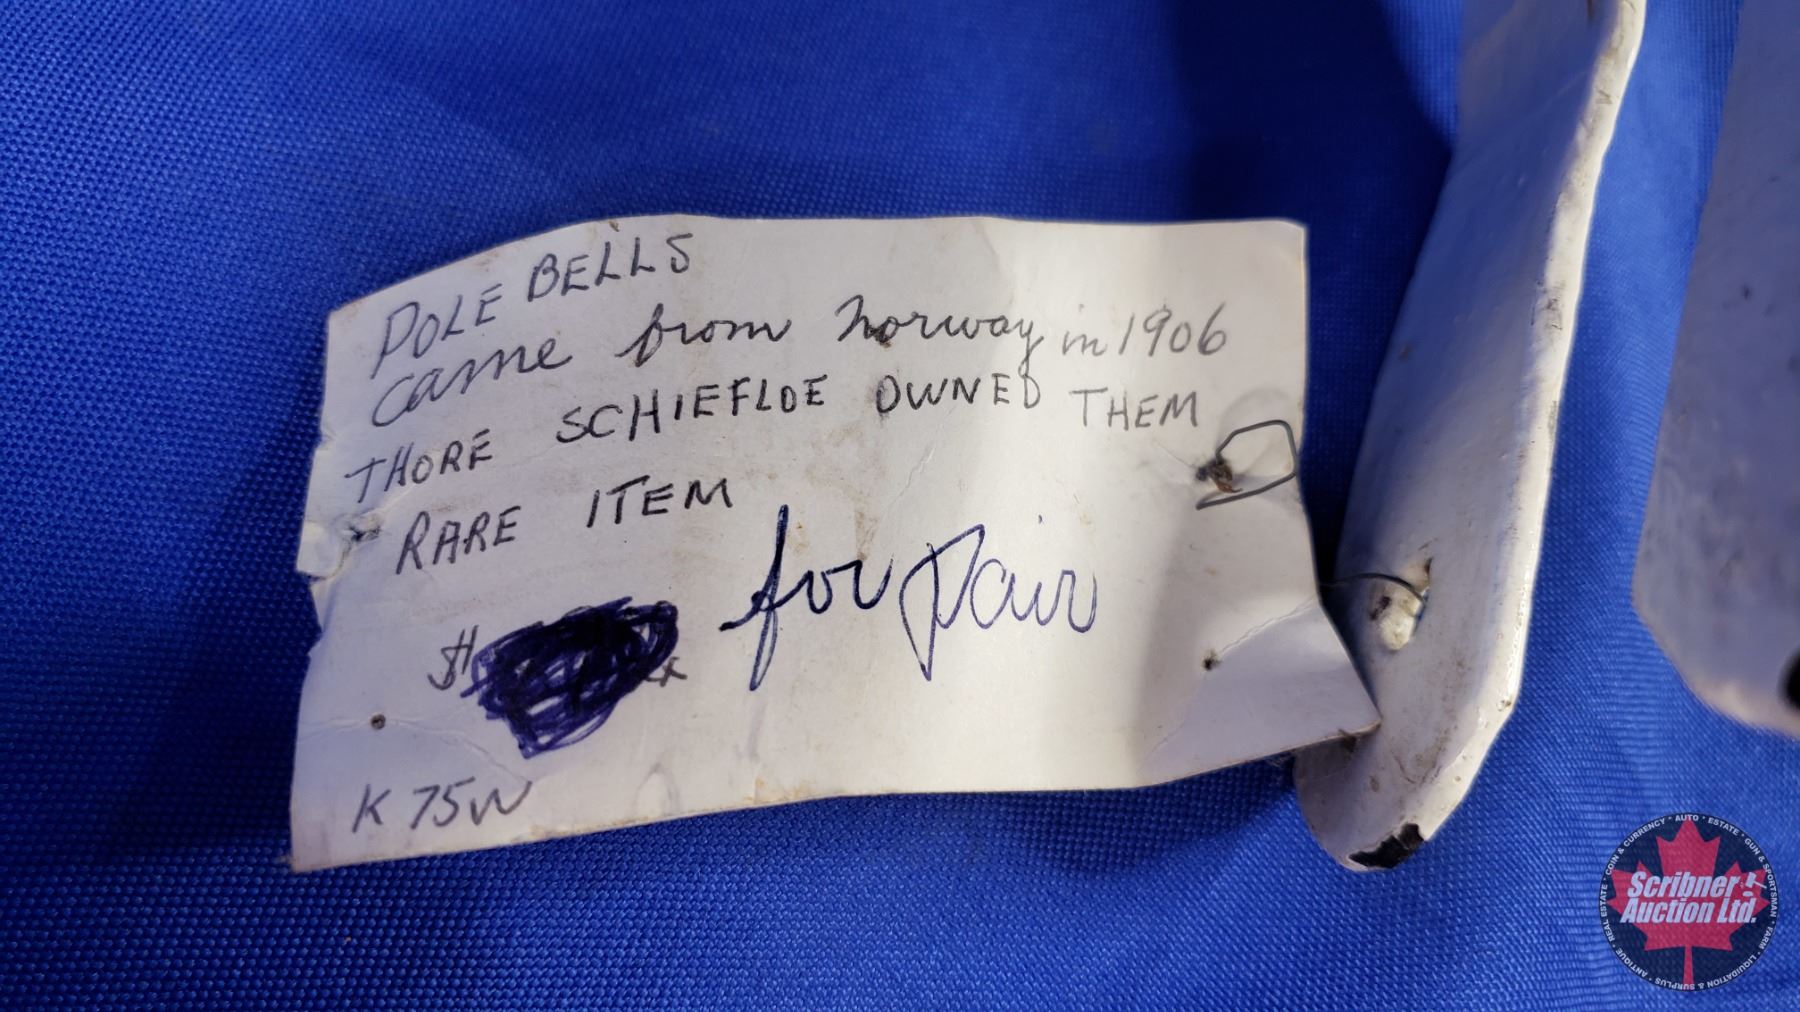 POLE BELLS
came from Norway in 1906
THORE SCHIEFLOE OWNED THEM
RARE ITEM
$ for Pair
K 75W
Scribner
Auction Ltd.
COIN & CURRENCY • AUTO • ESTATE • GUN & SPORTSMAN • FARM • LIQUIDATION & SURPLUS • ANTIQUE • REAL ESTATE